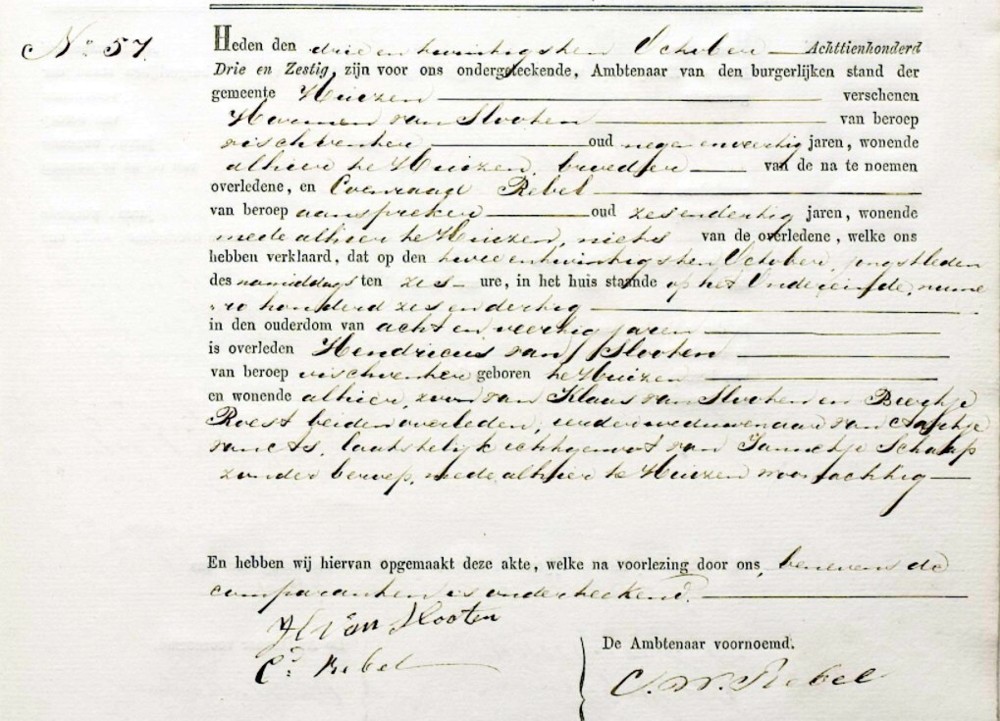 N° 57.
Heden den drie en twintigsten October Achttienhonderd
Drie en Zestig, zijn voor ons ondergeteekende, Ambtenaar van den burgerlijken stand der
gemeente Huizen verschenen
Harmen van Slooten van beroep
vischventer oud negen en veertig jaren, wonende
alhier te Huizen, broeder van de na te noemen
overledene, en Coenraad Rebel
van beroep aanspreker oud zes en dertig jaren, wonende
mede alhier te Huizen, niets van de overledene, welke ons
hebben verklaard, dat op den twee en twintigsten October, jongstleden
des namiddags ten zes ure, in het huis staande op het Ondereinde, nume
ro honderd zes en dertig
in den ouderdom van acht en veertig jaren
is overleden Hendricus van Slooten
van beroep vischventer geboren te Huizen
en wonende alhier, zoon van Klaas van Slooten en
Roest beiden overleden, eerder weduwenaar van
van As, laatstelijk echtgenoot van Jannetje Schaap
zonder beroep, mede alhier te Huizen woonachtig
En hebben wij hiervan opgemaakt deze akte, welke na voorlezing door ons, benevens de
comparanten is onderteekend.
H van Slooten
Cd Rebel
De Ambtenaar voornoemd.
C. W. Rebel